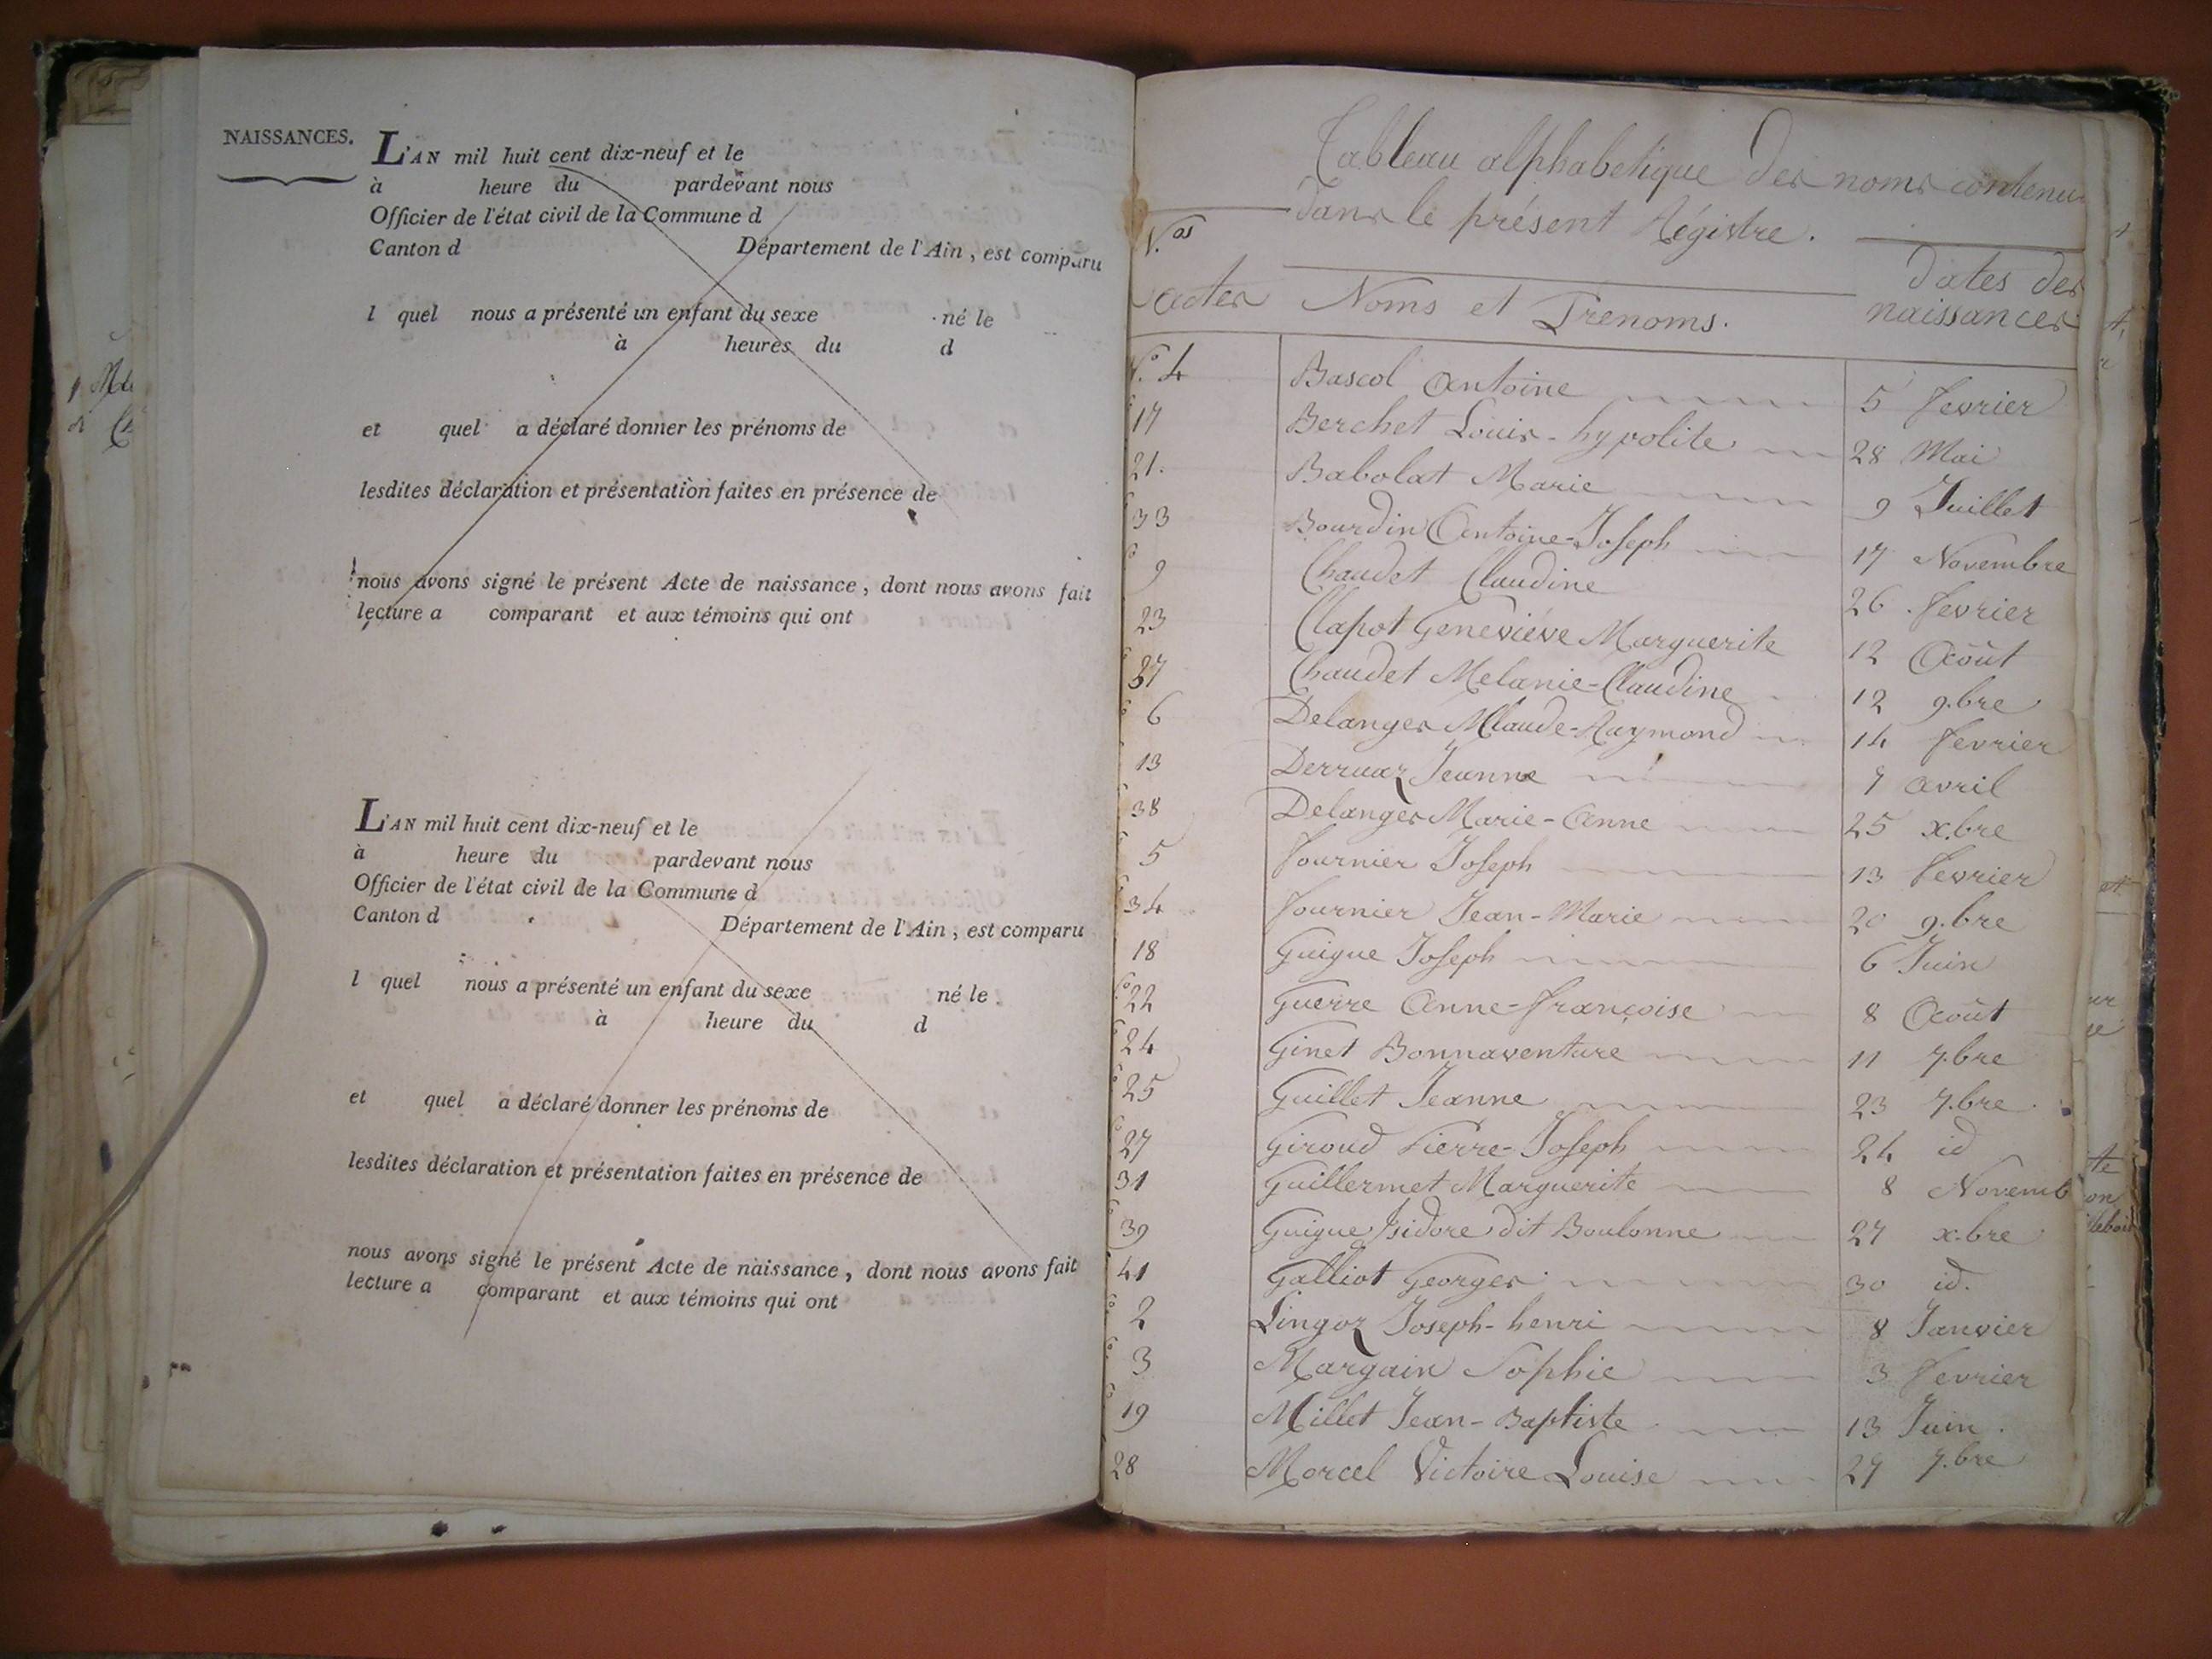 NAISSANCES.
L'AN mil huit cent dix-neuf et le
à heure du pardevant nous
Officier de l'état civil de la Commune d
Canton d Département de l'Ain, est comparu
l quel nous a présenté un enfant du sexe né le
à heures du d
et quel a déclaré donner les prénoms de
lesdites déclaration et présentation faites en présence de
nous avons signé le présent Acte de naissance, dont nous avons fait
lecture a comparant et aux témoins qui ont
L'AN mil huit cent dix-neuf et le
à heure du pardevant nous
Officier de l'état civil de la Commune d
Canton d Département de l'Ain, est comparu
l quel nous a présenté un enfant du sexe né le.
à heure du d
et quel a déclaré donner les prénoms de
lesdites déclaration et présentation faites en présence de
nous avons signé le présent Acte de naissance, dont nous avons fait
lecture a comparant et aux témoins qui ont
Tableau alphabetique des noms contenu
dans le présent Régistre.
N.os actes Noms et Prenoms. dates des naissances
N.o 4 Bascol Antoine 5 fevrier
17 Berchet Louis-hypolite 28 Mai
21. Babolat Marie 9 Juillet
33 Bourdin Antoine-Joseph 17 Novembre
9 Chaudet Claudine 26 fevrier
23 Clapot Geneviéve Marguerite 12 Août
37 Chaudet Melanie-Claudine 12 9.bre
6 Delanges Claude-Raymond 14 fevrier
13 Derruaz Jeanne 7 avril
38 Delanges Marie-Anne 25 x.bre
5 fournier Joseph 13 fevrier
34 fournier Jean-Marie 20 9.bre
18 Guigue Joseph 6 Juin
22 Guerre Anne-françoise 8 Août
24 Ginet Bonnaventure 11 7.bre
25 Guillet Jeanne 23 7.bre
27 Giroud Pierre-Joseph 24 id
31 Guillermet Marguerite 8 Novemb
39 Guigue Isidore dit Boulonne 27 x.bre
41 Galliot Georges 30 id.
2 Lingoz Joseph-henri 8 Janvier
3 Margain Sophie 3 fevrier
19 Millet Jean-Baptiste 13 Juin.
28 Morcel Victoire Louise 27 7.bre